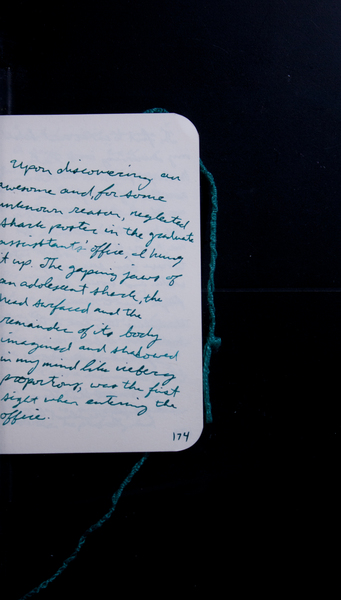 Upon discovering an
awesome and, for some
unknown reason, neglected
shark poster in the graduate
assistants' office, I hung
it up. The gaping jaws of
an adolescent shark, the
head surfaced and the
remainder of its body
imagined and shadowed
in my mind like iceberg
proportions, was the first
sight when entering the
office.
174